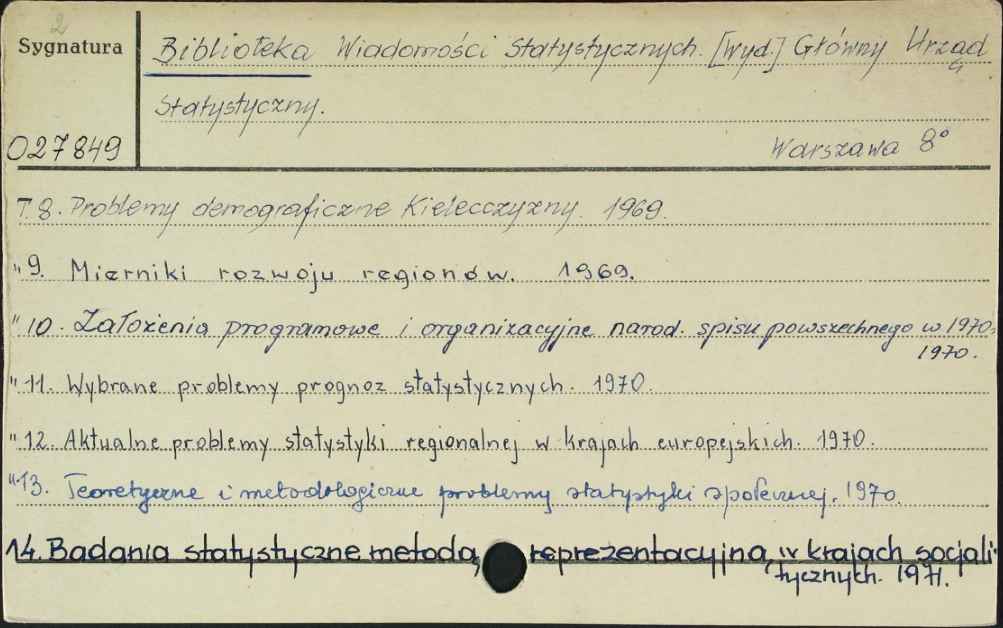 2
Sygnatura
Biblioteka Wiadomości Statystycznych. [Wyd.] Główny Urząd
Statystyczny.
027849
Warszawa 8°
T. 8. Problemy demograficzne Kielecczyzny. 1969.
" 9. Mierniki rozwoju regionów. 1969.
" 10. Założenia programowe i organizacyjne narod. spisu powszechnego w 1970.
1970.
" 11. Wybrane problemy prognoz statystycznych. 1970.
" 12. Aktualne problemy statystyki regionalnej w krajach europejskich. 1970.
" 13. Teoretyczne i metodologiczne problemy statystyki społecznej. 1970.
14. Badania statystyczne metodą reprezentacyjną w krajach socjali
tycznych. 1971.